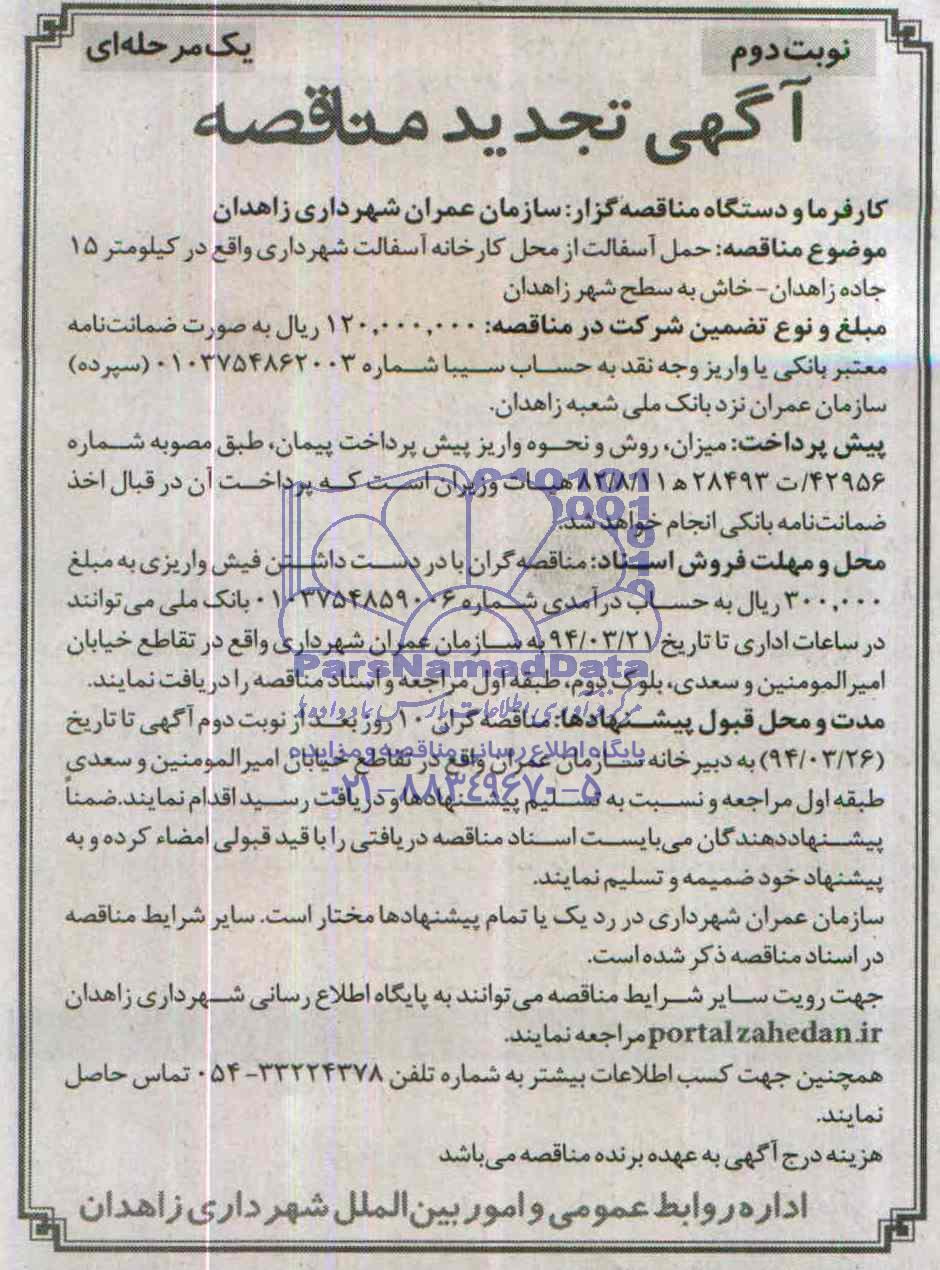 نوبت دوم
یک مرحله‌ای
آگهی تجدید مناقصه
کارفرما و دستگاه مناقصه‌گزار: سازمان عمران شهرداری زاهدان
موضوع مناقصه: حمل آسفالت از محل کارخانه آسفالت شهرداری واقع در کیلومتر ۱۵
جاده زاهدان-خاش به سطح شهر زاهدان
مبلغ و نوع تضمین شرکت در مناقصه: ۱۲۰,۰۰۰,۰۰۰ ریال به صورت ضمانت‌نامه
معتبر بانکی یا واریز وجه نقد به حساب سیبا شماره ۰۱۰۳۷۵۴۸۶۲۰۰۳ (سپرده)
سازمان عمران نزد بانک ملی شعبه زاهدان.
پیش پرداخت: میزان، روش و نحوه واریز پیش پرداخت پیمان، طبق مصوبه شماره
۴۲۹۵۶/ت ۲۸۴۹۳ ه ۸۲/۸/۱۱ هیات وزیران است که پرداخت آن در قبال اخذ
ضمانت‌نامه بانکی انجام خواهد شد.
محل و مهلت فروش اسناد: مناقصه‌گران با در دست داشتن فیش واریزی به مبلغ
۳۰۰,۰۰۰ ریال به حساب درآمدی شماره ۰۱۰۳۷۵۴۸۵۹۰۰۶ بانک ملی می‌توانند
در ساعات اداری تا تاریخ ۹۴/۰۳/۲۱ به سازمان عمران شهرداری واقع در تقاطع خیابان
امیرالمومنین و سعدی، بلوک دوم، طبقه اول مراجعه و اسناد مناقصه را دریافت نمایند.
مدت و محل قبول پیشنهادها: مناقصه‌گران ۱۰ روز بعد از نوبت دوم آگهی تا تاریخ
(۹۴/۰۳/۲۶) به دبیرخانه سازمان عمران واقع در تقاطع خیابان امیرالمومنین و سعدی
طبقه اول مراجعه و نسبت به تسلیم پیشنهادها و دریافت رسید اقدام نمایند.ضمناً
پیشنهاددهندگان می‌بایست اسناد مناقصه دریافتی را با قید قبولی امضاء کرده و به
پیشنهاد خود ضمیمه و تسلیم نمایند.
سازمان عمران شهرداری در رد یک یا تمام پیشنهادها مختار است. سایر شرایط مناقصه
در اسناد مناقصه ذکر شده است.
جهت رویت سایر شرایط مناقصه می‌توانند به پایگاه اطلاع رسانی شهرداری زاهدان
portalzahedan.ir مراجعه نمایند.
همچنین جهت کسب اطلاعات بیشتر به شماره تلفن ۳۳۲۲۴۳۷۸-۰۵۴ تماس حاصل
نمایند.
هزینه درج آگهی به عهده برنده مناقصه می‌باشد
اداره روابط عمومی و امور بین‌الملل شهرداری زاهدان
ParsNamadData
پایگاه اطلاع رسانی مناقصه و مزایده
۰۲۱-۸۸۳۴۹۶۷۰-۵